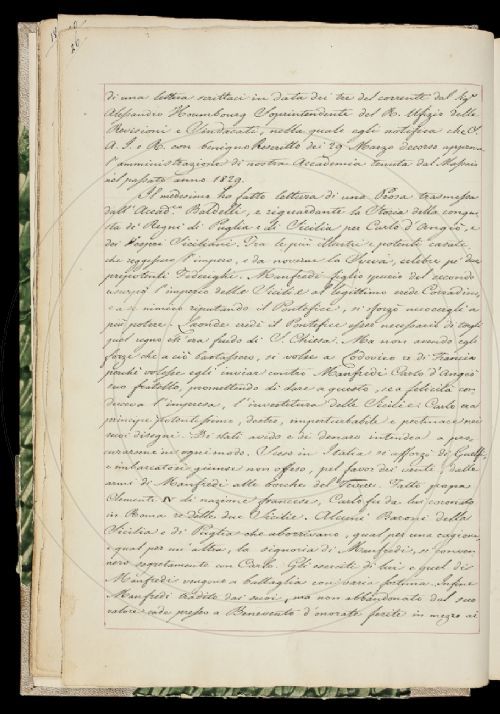 di una lettera scrittaci in data dei tre del corrente dal Sigr
Alessandro Soprintendente del R. Ufizio delle
Revisioni e Sindacati, nella quale egli notifica che S.
A. I. e R. con benigno Rescritto dei 29 Marzo decorso approva
l'amministrazione di nostra Accademia tenuta dal Massaio
nel passato anno 1829.
Il medesimo ha fatto lettura di una Prosa trasmessa
dall'Accad.co Baldelli, e riguardante la Storia della conqui-
sta de' Regni di Puglia e di Sicilia per Carlo d'Angiò, e
dei Vespri Siciliani. Tra le più illustri e potenti casate
che reggesse l'impero, è da noverar la Sveva, celebre pe' due
prepotenti Federighi. Manfredi figlio spurio del secondo
usurpò l'imperio delle Sicilie al legittimo erede Corradino,
e a se nimico reputando il Pontefice, si sforzò nuocergli a
più potere. Laonde credè il Pontefice esser necessario di torgli
quel regno ch'era feudo di S. Chiesa. Ma non avendo egli
forze che a ciò bastassero, si volse a Lodovico re di Francia
perchè volesse egli inviar contro Manfredi Carlo d'Angiò
suo fratello, promettendo di dare a questo, se a felicità con-
duceva l'impresa, l'investitura delle Sicilie. Carlo era
principe potentissimo, destro, imperturbabile e pertinace nei
suoi disegni. Di stati avido e di denaro intendea a pro-
curarsene in ogni modo. Sceso in Italia si afforzò di Guelfi
e imbarcatosi giunse non offeso, pel favor dei venti, dalle
armi di Manfredi alle bocche del Tevere. Fatto papa
Clemente IV di nazione francese, Carlo fu da lui coronato
in Roma re delle due Sicilie. Alcuni Baroni della
Sicilia e di Puglia che aborrivano, qual per una cagione,
e qual per un'altra, la signoria di Manfredi, si conven-
nero segretamente con Carlo. Gli eserciti di lui e quel di
Manfredi vengono a battaglia con varia fortuna. Infine
Manfredi tradito dai suoi, ma non abbandonato dal suo
valore cade presso a Benevento d'onorate ferite in mezzo ai